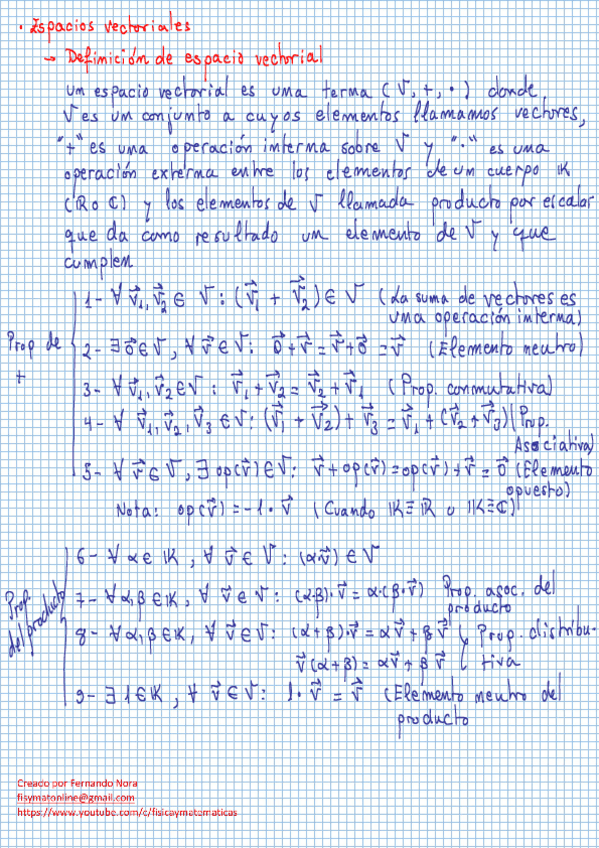 · Espacios vectoriales
→ Definición de espacio vectorial
Un espacio vectorial es una terma (V, +, ·) donde
V es un conjunto a cuyos elementos llamamos vectores,
"+" es una operación interna sobre V y "·" es una
operación externa entre los elementos de un cuerpo K
(R o C) y los elementos de V llamada producto por escalar
que da como resultado un elemento de V y que
cumplen
Prop de +
1- ∀ v⃗₁, v⃗₂ ∈ V : (v⃗₁ + v⃗₂) ∈ V (La suma de vectores es
una operación interna)
2- ∃ 0⃗ ∈ V, ∀ v⃗ ∈ V : 0⃗ + v⃗ = v⃗ + 0⃗ = v⃗ (Elemento neutro)
3- ∀ v⃗₁, v⃗₂ ∈ V : v⃗₁ + v⃗₂ = v⃗₂ + v⃗₁ (Prop. conmutativa)
4- ∀ v⃗₁, v⃗₂, v⃗₃ ∈ V : (v⃗₁ + v⃗₂) + v⃗₃ = v⃗₁ + (v⃗₂ + v⃗₃) (Prop.
Asociativa)
5- ∀ v⃗ ∈ V, ∃ op(v⃗) ∈ V : v⃗ + op(v⃗) = op(v⃗) + v⃗ = 0⃗ (Elemento
opuesto)
Nota: op(v⃗) = -1 · v⃗ (Cuando K ≡ R o K ≡ C)
Prop. del producto
6- ∀ α ∈ K, ∀ v⃗ ∈ V : (α·v⃗) ∈ V
7- ∀ α, β ∈ K, ∀ v⃗ ∈ V : (α·β)·v⃗ = α·(β·v⃗) Prop. asoc. del
producto
8- ∀ α, β ∈ K, ∀ v⃗ ∈ V : (α+β)·v⃗ = αv⃗ + βv⃗ Prop. distribu-
v⃗(α+β) = αv⃗ + βv⃗ tiva
9- ∃ 1 ∈ K, ∀ v⃗ ∈ V : 1·v⃗ = v⃗ (Elemento neutro del
producto
Creado por Fernando Nora
fisymatonline@gmail.com
https://www.youtube.com/c/fisicaymatematicas